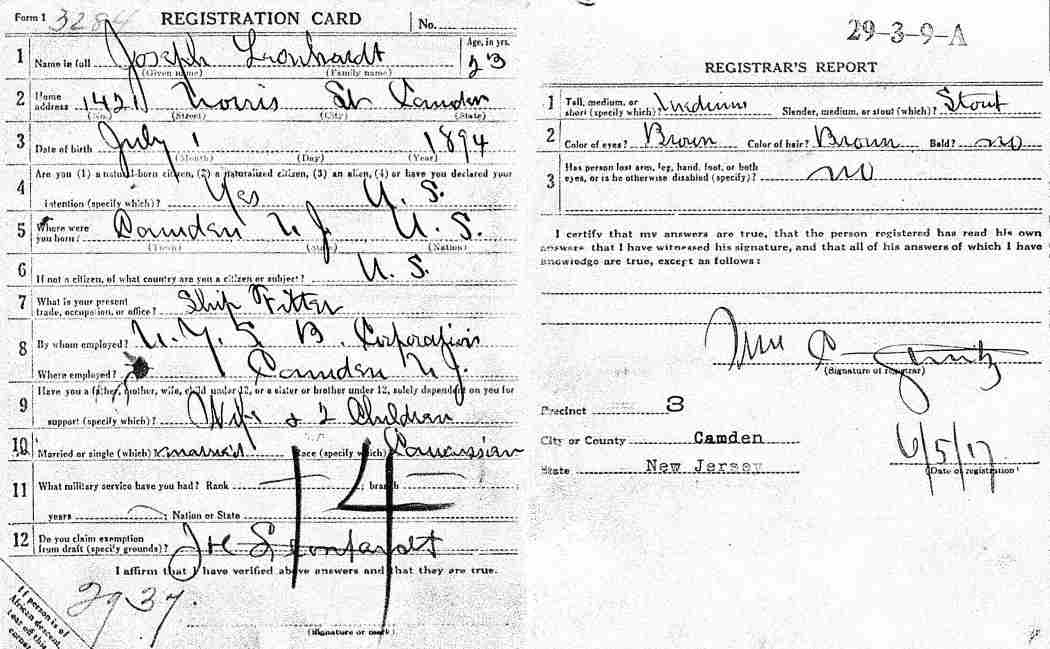 Form 1 3284 REGISTRATION CARD No.
1 Name in full Joseph Leonhardt Age, in yrs. 23
(Given name) (Family name)
2 Home address 1421 Norris St Camden
(No.) (Street) (City) (State)
3 Date of birth July 1 1894
(Month) (Day) (Year)
4 Are you (1) a natural-born citizen, (2) a naturalized citizen, (3) an alien, (4) or have you declared your
intention (specify which)? Yes U. S.
5 Where were you born? Camden N. J. U. S.
(Town) (State) (Nation)
6 If not a citizen, of what country are you a citizen or subject? U. S.
7 What is your present trade, occupation, or office? Ship Fitter
8 By whom employed? N. Y. S. B. Corporation
Where employed? Camden N. J.
9 Have you a father, mother, wife, child under 12, or a sister or brother under 12, solely dependent on you for
support (specify which)? Wife & 2 Children
10 Married or single (which) married Race (specify which) Caucasian
11 What military service have you had? Rank ; branch
years ; Nation or State
12 Do you claim exemption from draft (specify grounds)? Joe Leonhardt
14
I affirm that I have verified above answers and that they are true.
2937.
(Signature or mark)
If person is of
African descent,
tear off this
corner
29-3-9-A
REGISTRAR'S REPORT
1 Tall, medium, or short (specify which)? Medium Slender, medium, or stout (which)? Stout
2 Color of eyes? Brown Color of hair? Brown Bald? no
3 Has person lost arm, leg, hand, foot, or both
eyes, or is he otherwise disabled (specify)? no
I certify that my answers are true, that the person registered has read his own
answers that I have witnessed his signature, and that all of his answers of which I have
knowledge are true, except as follows:
Wm C
(Signature of registrar)
Precinct 3
City or County Camden
State New Jersey
6/5/17
(Date of registration)